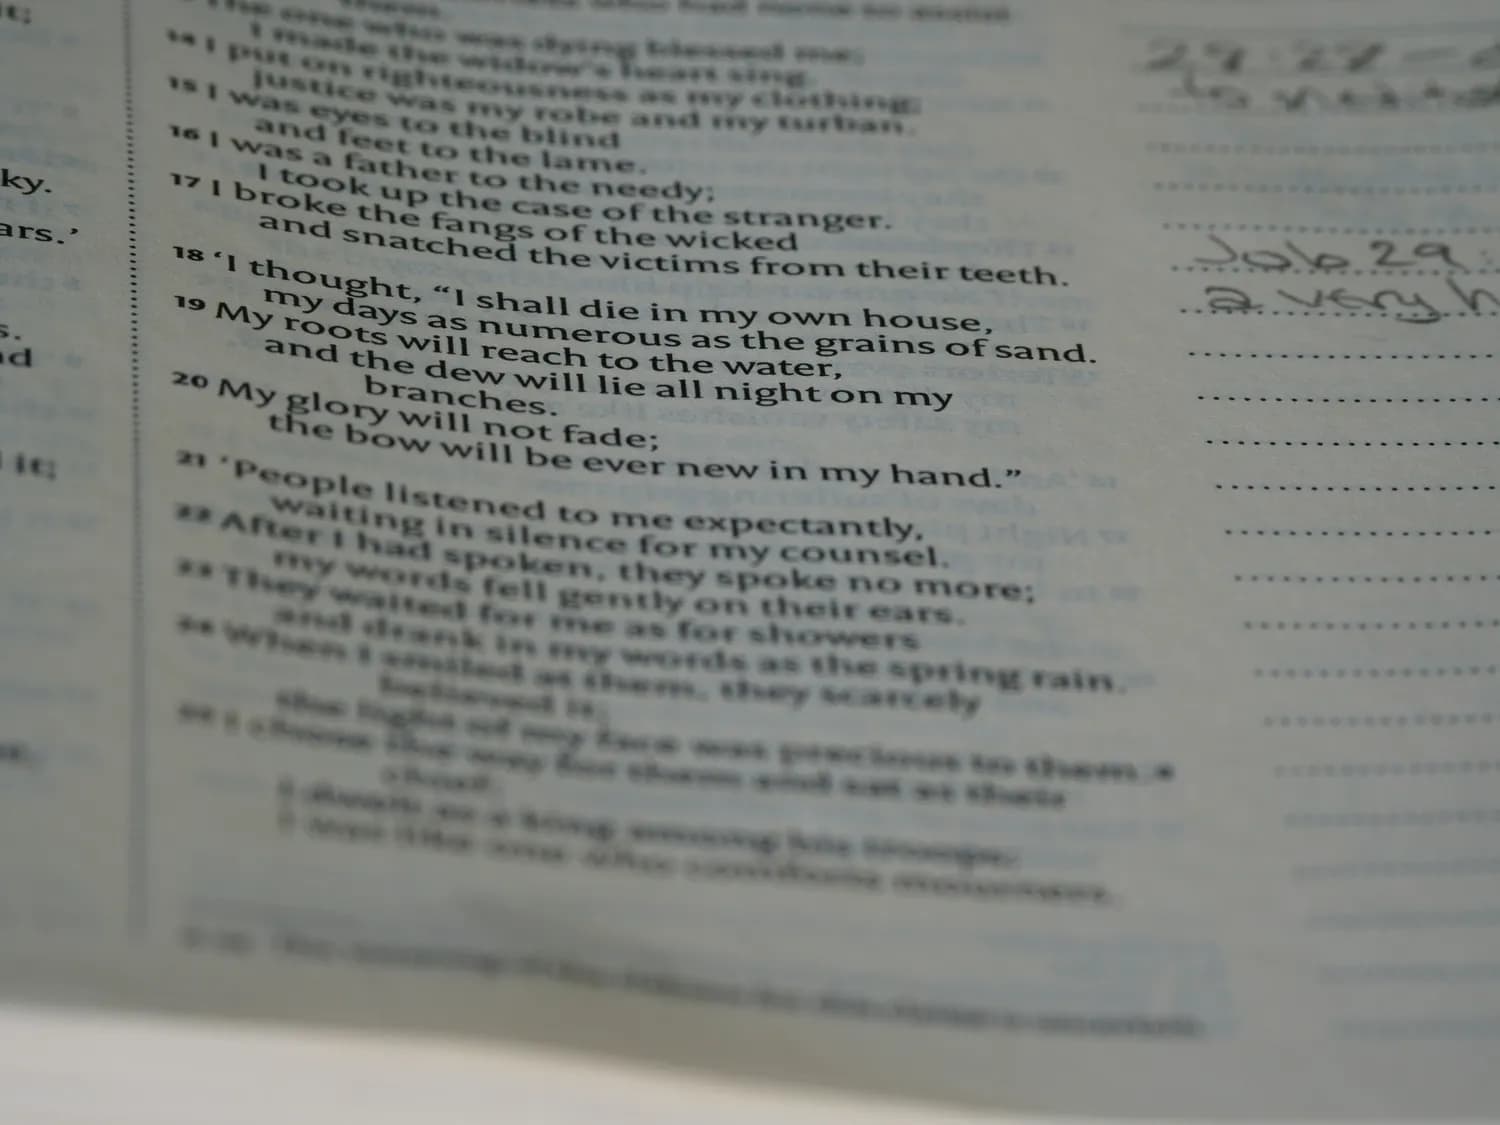 it;
ky.
ars.’
s.
nd
it;
them.
The one who was dying blessed me;
I made the widow’s heart sing.
14 I put on righteousness as my clothing;
justice was my robe and my turban.
15 I was eyes to the blind
and feet to the lame.
16 I was a father to the needy;
I took up the case of the stranger.
17 I broke the fangs of the wicked
and snatched the victims from their teeth.
18 ‘I thought, “I shall die in my own house,
my days as numerous as the grains of sand.
19 My roots will reach to the water,
and the dew will lie all night on my
branches.
20 My glory will not fade;
the bow will be ever new in my hand.”
21 ‘People listened to me expectantly,
waiting in silence for my counsel.
22 After I had spoken, they spoke no more;
my words fell gently on their ears.
23 They waited for me as for showers
and drank in my words as the spring rain.
24 When I smiled at them, they scarcely
believed it;
the light of my face was precious to them.
25 I chose the way for them and sat as their
chief;
I dwelt as a king among his troops;
I was like one who comforts mourners.
Job 29
a very